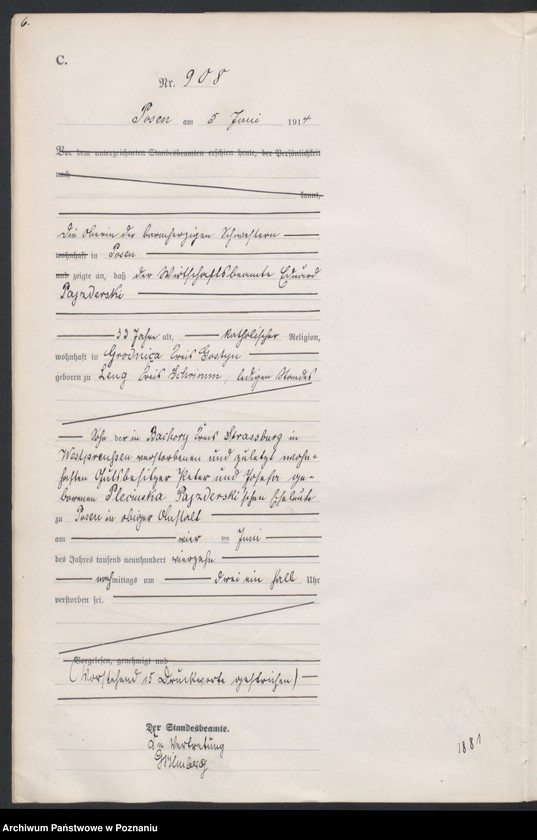 6.
C.
Nr. 908
Posen am 5 Juni 1914
Vor dem unterzeichneten Standesbeamten erschien heute, der Persönlichkeit
nach
kannt,
Die Oberin der barmherzigen Schwestern
wohnhaft in Posen
und zeigte an, daß der Wirtschaftsbeamte Eduard
Pajzderski
33 Jahre alt, katholischer Religion,
wohnhaft in Grodnica Kreis Gostyn
geboren zu Leng Kreis Schrimm, ledigen Standes
Sohn der in Kreis Strassburg in
Westpreußen verstorbenen und zuletzt wohn-
haften Gutsbesitzer Peter und Josefa ge-
borenen Pajzderski'schen Eheleute
zu Posen in obiger Anstalt
am vier ten Juni
des Jahres tausend neunhundert vierzehn
nachmittags um drei ein halb Uhr
verstorben sei.
Vorgelesen, genehmigt und
(Vorstehend 15 Druckworte gestrichen)
Der Standesbeamte.
In Vertretung
1881
Archiwum Państwowe w Poznaniu